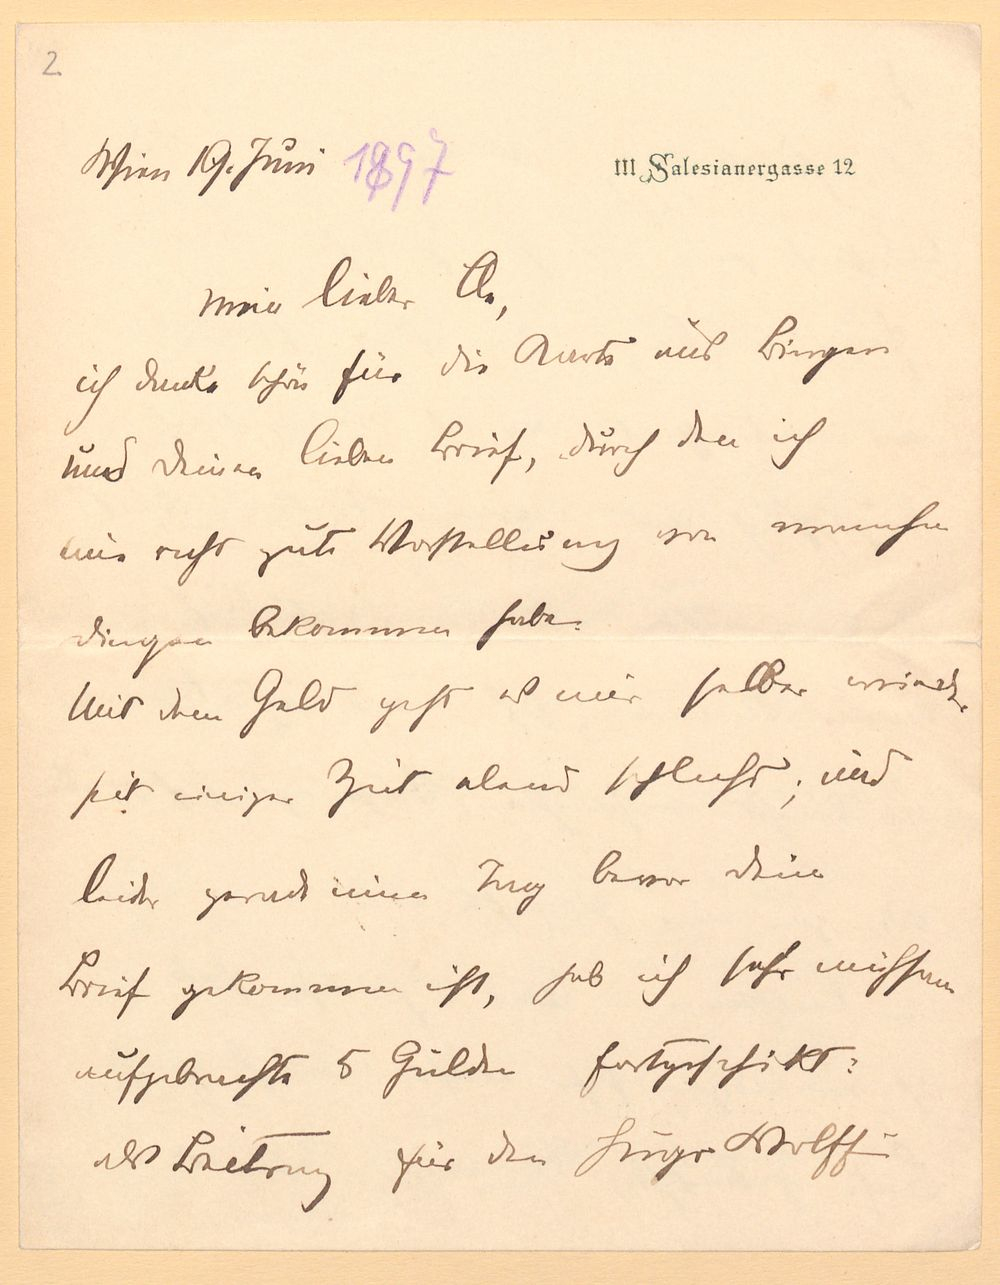 2.
Wien 19. Juni 1897
III Salesianergasse 12
mein lieber
ich danke schön für die Karte aus Bingen
und deinen lieben Brief, durch den ich
eine recht gute Vorstellung von manchen
dingen bekommen habe.
Mit dem Geld geht es mir selber
seit einiger Zeit elend schlecht; und
leider gerade einen Tag bevor dein
Brief gekommen ist, hab ich sehr mühsam
aufgebrachte 5 Gulden fortgeschikt:
als Beitrag für den Hugo Wolff-